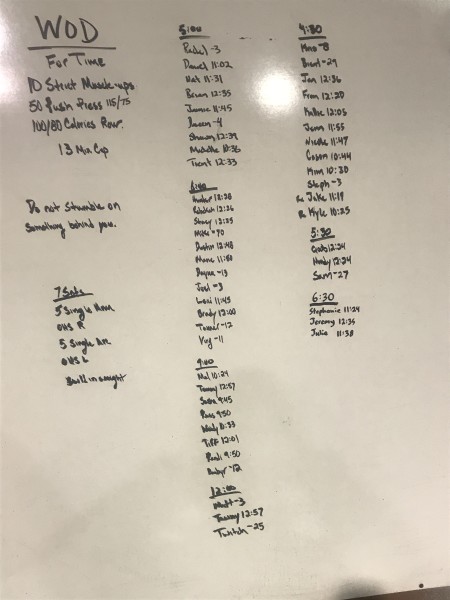 WOD
For Time
10 Strict Muscle-ups
50 Push Press 115/75
100/80 Calories Row
13 Min Cap
Do not stumble on
something behind you.
7 Sets
5 Single Arm
OHS R
5 Single Arm
OHS L
Build in weight
5:00
Rachel -3
Daniel 11:02
Nat 11:31
Brian 12:35
Jamie 11:45
-4
Shawn 12:39
Michelle 10:36
Trent 12:33
Hunter
Rebekah 12:26
Stacy 12:25
Mike -70
Dustin 12:48
Dayna -13
Joel -3
Lexi 11:45
Brady 12:00
Tanner -12
-11
9:00
Mel 10:24
Tammy 12:57
Sara 9:45
9:50
Tiff 12:01
9:50
-12
12:00
Matt -3
Tammy 12:57
Twitch -25
4:30
-8
Brent -29
Jan 12:36
Fran 12:20
12:03
Jenn 11:55
Nicole 11:47
Casen 10:44
Kim 10:30
Steph -3
Rx Jake 11:19
Rx Kyle 10:25
5:30
12:24
12:24
Sam -27
6:30
Stephanie 11:24
Jeremy 12:34
Julio 11:38